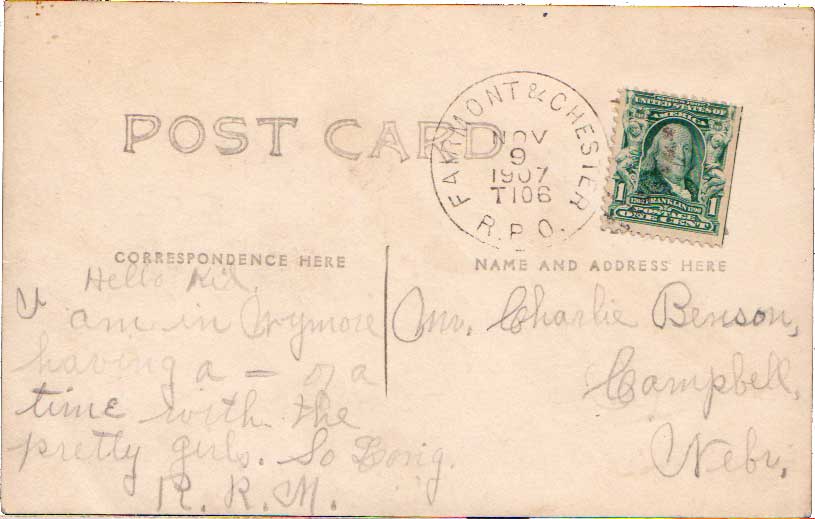 POST CARD
FAIRMONT & CHESTER
NOV
9
1907
T106
R.P.O.
UNITED STATES OF
AMERICA
1 FRANKLIN 1
POSTAGE
ONE CENT
CORRESPONDENCE HERE
NAME AND ADDRESS HERE
Hello Kid,
I am in Wymore
having a — of a
time with the
pretty girls. So Long.
R. R. M.
Mr. Charlie Benson,
Campbell,
Nebr,